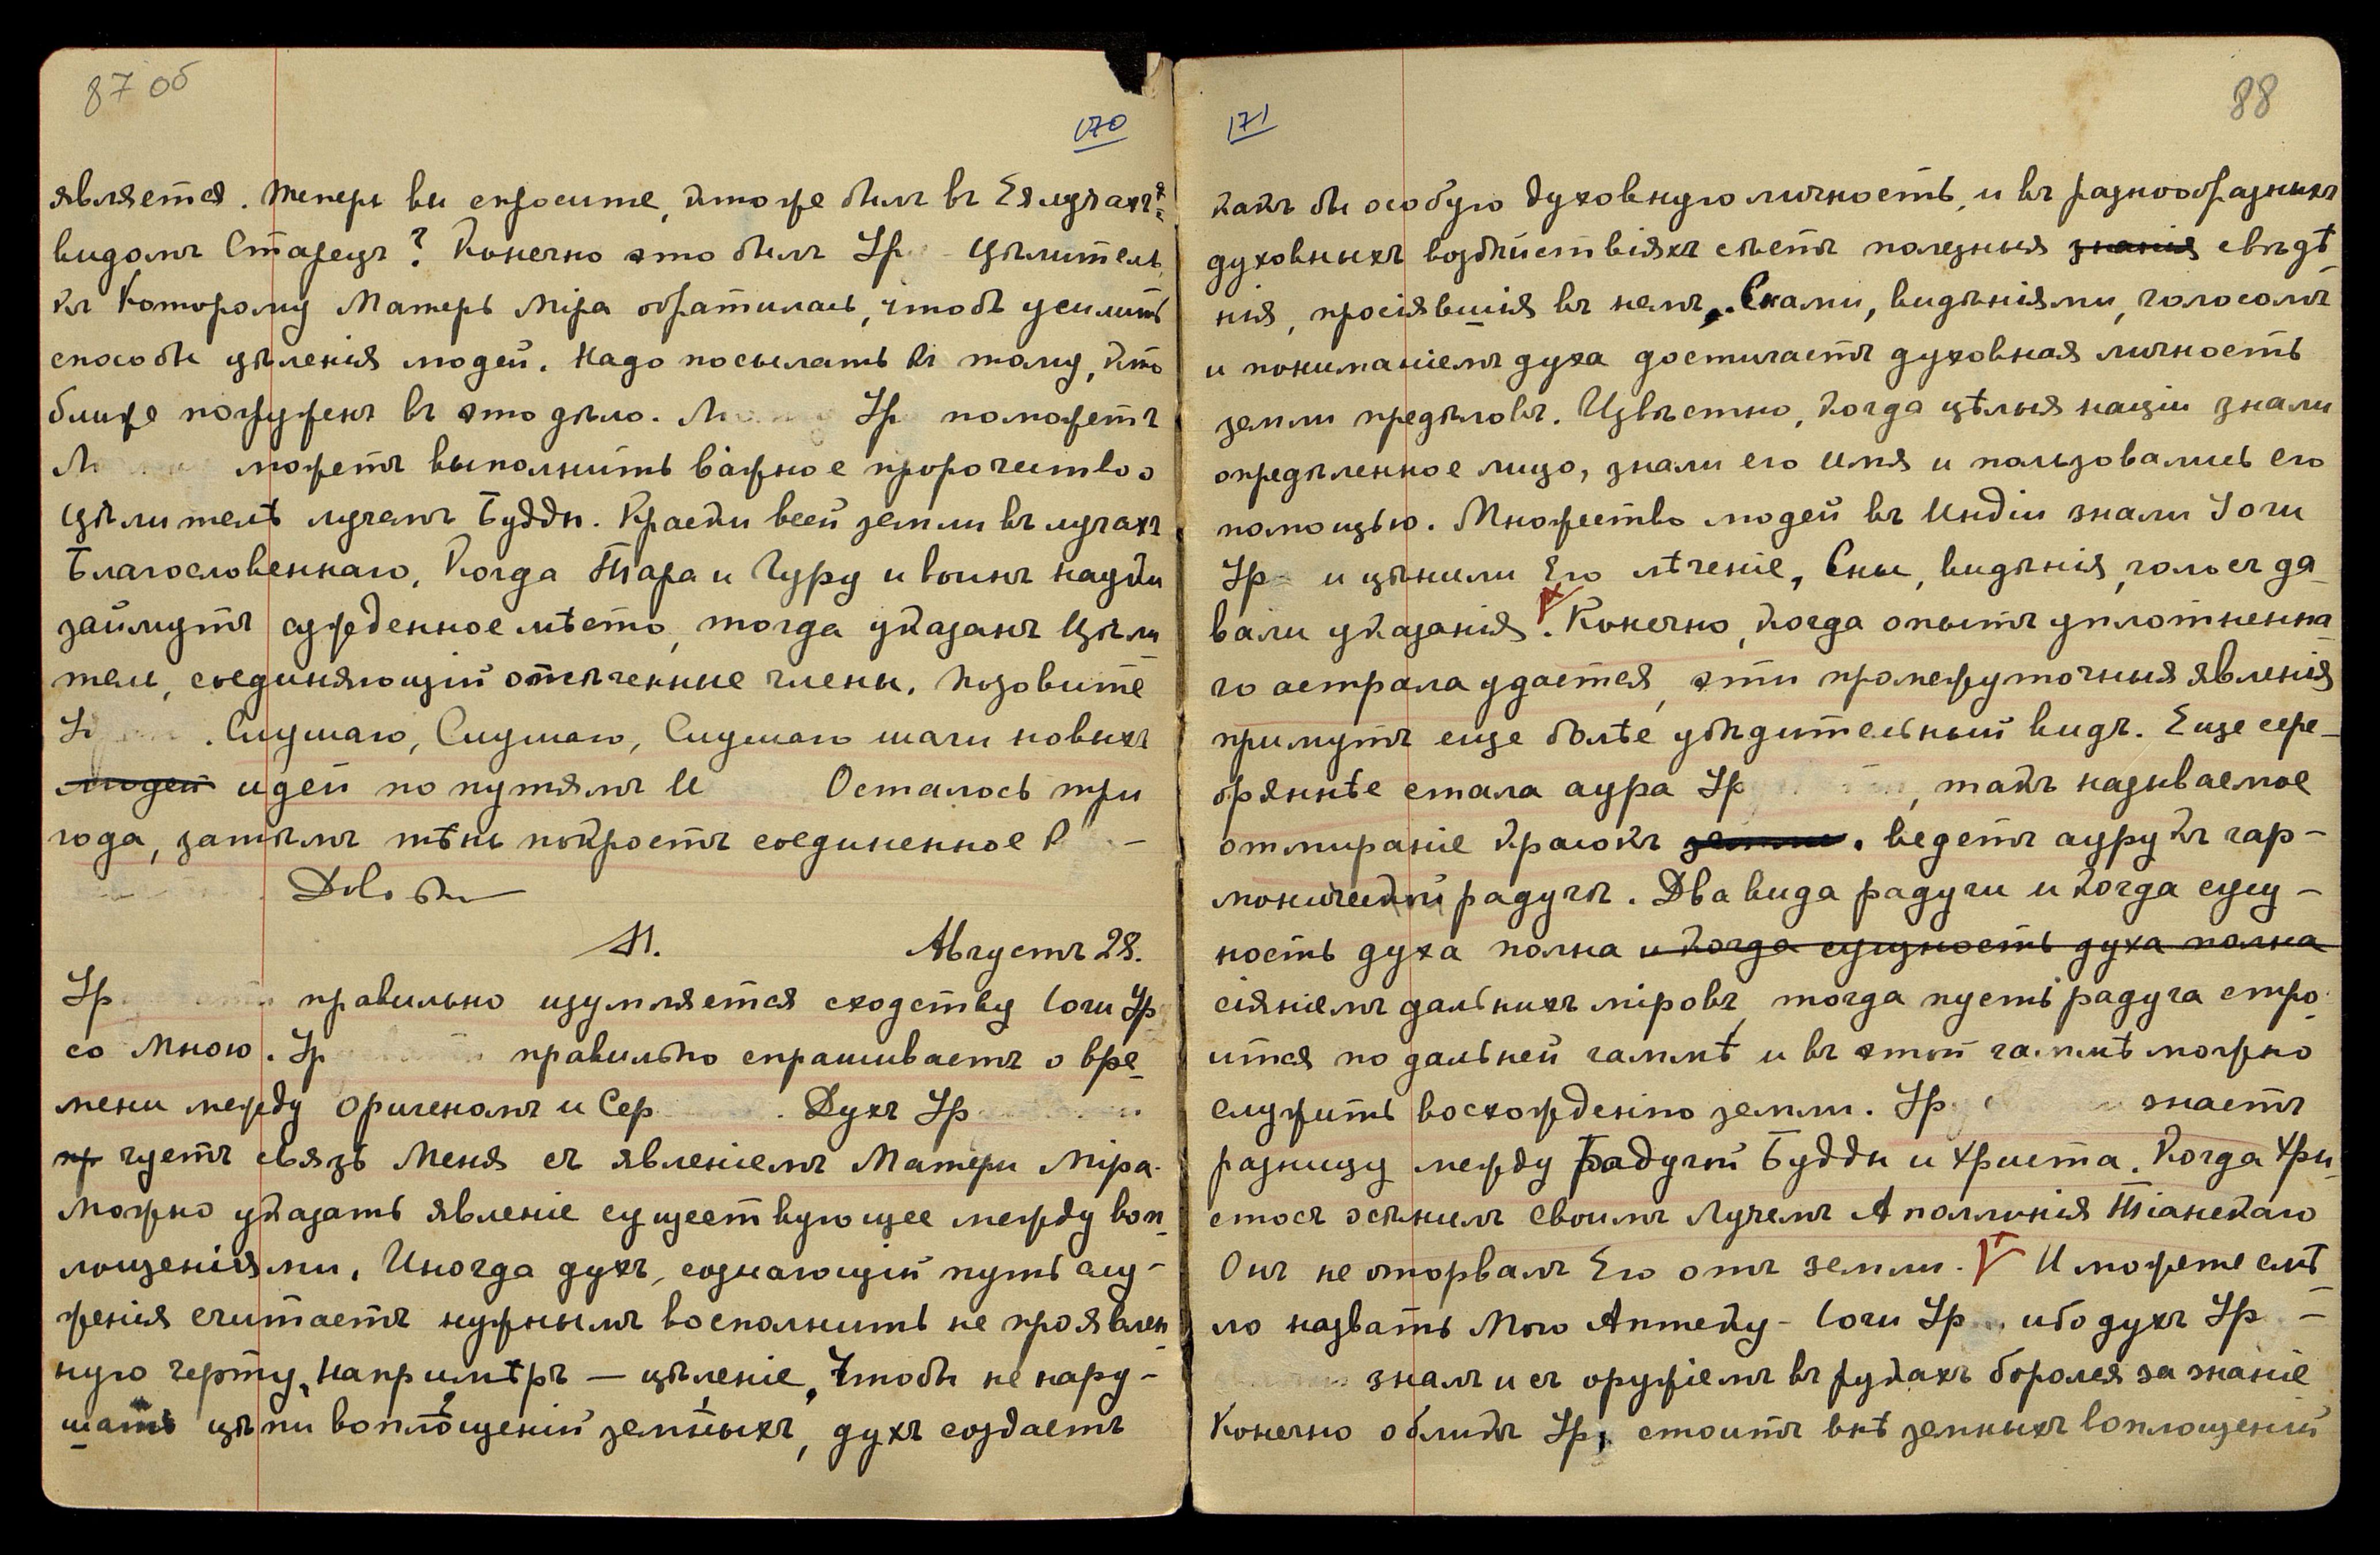 87 об
170
является. Теперь вы спросите, кто же былъ въ Ея лучахъ
видомъ Старецъ? Конечно это былъ Ур Цѣлитель,
къ Которому Матерь Міра обратилась, чтобъ усилить
способы цѣленія людей. Надо посылать къ тому, кто
ближе погруженъ въ это дѣло. Ур поможетъ
можетъ выполнить важное пророчество о
Цѣлителѣ лучемъ Будды. Краски всей земли въ лучахъ
Благословеннаго, Когда Тара и Гуру и воинъ науки
займутъ сужденное мѣсто, тогда указанъ Цѣли
тель, соединяющій отсѣченные члены. Позовите
. Слушаю, Слушаю, Слушаю шаги новыхъ
людей идей по путямъ И Осталось три
года, затѣмъ тѣнь покроетъ соединенное К –
Довольно
11. Августъ 28.
Ур правильно изумляется сходству Іоги Ур
со Мною. Ур правильно спрашиваетъ о вре-
мени между Оригеномъ и Сер . Духъ Ур
пр чуетъ связь Меня съ явленіемъ Матери Міра.
Можно указать явленіе существующее между воп-
лощеніями. Иногда духъ, сознающій путь слу-
женія считаетъ нужнымъ восполнить не проявлен-
ную черту, напримѣръ — цѣленіе, Чтобы не нару-
шать цѣпи воплощеній земныхъ, духъ создаетъ
171
88
какъ бы особую духовную личность, и въ разнообразныхъ
духовныхъ воздѣйствіяхъ сѣетъ полезныя знанія свѣдѣ-
нія, просіявшія въ немъ. Снами, видѣніями, голосомъ
и пониманіемъ духа достигаетъ духовная личность
земли предѣловъ. Извѣстно, когда цѣлыя націи знали
опредѣленное лицо, знали его имя и пользовались его
помощью. Множество людей въ Индіи знали Іоги
Ур и цѣнили Его лѣченіе, Сны, видѣнія, голосъ да-
вали указанія. Конечно, когда опытъ уплотненна-
го астрала удается, эти промежуточныя явленія
примутъ еще болѣе убѣдительный видъ. Еще сере-
брянѣе стала аура Ур , такъ называемое
отмираніе краіокъ земли. ведетъ ауру къ гар-
моничной радугѣ. Два вида радуги и когда сущ-
ность духа полна и когда сущность духа полна
сіяніемъ дальнихъ міровъ, тогда пусть радуга стро-
ится по дальней гаммѣ и въ этой гаммѣ можно
служить восхожденію земли. Ур знаетъ
разницу между Радугой Будды и Христа. Когда Хри-
стосъ осѣнилъ своимъ Лучемъ Аполлонія Тіанскаго
Онъ не оторвалъ Его отъ земли. И можете смѣ
ло назвать Мою Аптеку - Іоги Ур , ибо духъ Ур –
зналъ и съ оружіемъ въ рукахъ боролся за знаніе
Конечно обликъ Ур, стоитъ внѣ земныхъ воплощеній